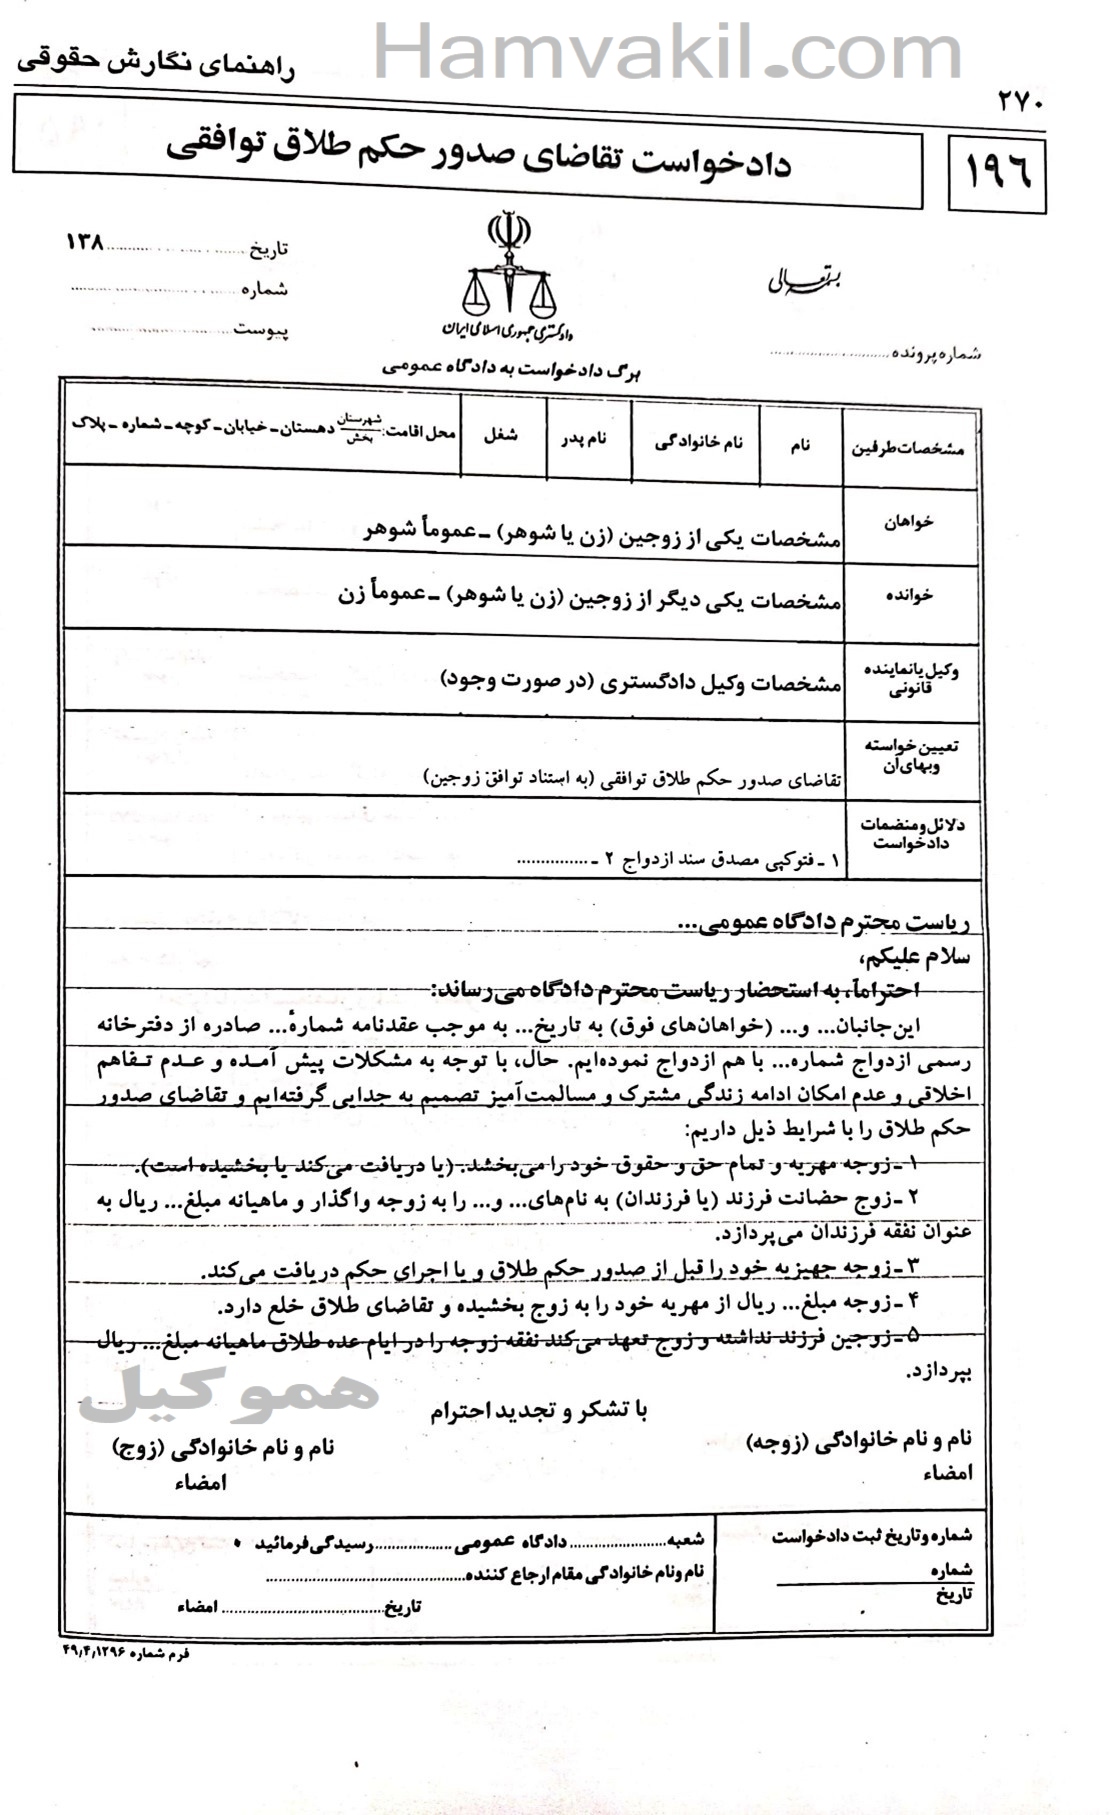 Hamvakil.com
راهنمای نگارش حقوقی
۲۷۰
۱۹۶
دادخواست تقاضای صدور حکم طلاق توافقی
بسمه‌تعالی
تاریخ ........................ ۱۳۸
شماره ........................
پیوست ........................
دادگستری جمهوری اسلامی ایران
شماره پرونده ........................
برگ دادخواست به دادگاه عمومی
مشخصات طرفین
نام
نام خانوادگی
نام پدر
شغل
محل اقامت: شهرستان/بخش دهستان ـ خیابان ـ کوچه ـ شماره ـ پلاک
خواهان
مشخصات یکی از زوجین (زن یا شوهر) ـ عموماً شوهر
خوانده
مشخصات یکی دیگر از زوجین (زن یا شوهر) ـ عموماً زن
وکیل یا نماینده
قانونی
مشخصات وکیل دادگستری (در صورت وجود)
تعیین خواسته
وبهای آن
تقاضای صدور حکم طلاق توافقی (به استناد توافق زوجین)
دلائل و منضمات
دادخواست
۱ ـ فتوکپی مصدق سند ازدواج ۲ ـ ................
ریاست محترم دادگاه عمومی...
سلام علیکم،
احتراماً، به استحضار ریاست محترم دادگاه می‌رساند:
این‌جانبان... و... (خواهان‌های فوق) به تاریخ... به موجب عقدنامه شمارهٔ... صادره از دفترخانه
رسمی ازدواج شماره... با هم ازدواج نموده‌ایم. حال، با توجه به مشکلات پیش آمده و عدم تفاهم
اخلاقی و عدم امکان ادامه زندگی مشترک و مسالمت‌آمیز تصمیم به جدایی گرفته‌ایم و تقاضای صدور
حکم طلاق را با شرایط ذیل داریم:
۱ ـ زوجه مهریه و تمام حق و حقوق خود را می‌بخشد. (یا دریافت می‌کند یا بخشیده است).
۲ ـ زوج حضانت فرزند (یا فرزندان) به نام‌های... و... را به زوجه واگذار و ماهیانه مبلغ... ریال به
عنوان نفقه فرزندان می‌پردازد.
۳ ـ زوجه جهیزیه خود را قبل از صدور حکم طلاق و یا اجرای حکم دریافت می‌کند.
۴ ـ زوجه مبلغ... ریال از مهریه خود را به زوج بخشیده و تقاضای طلاق خلع دارد.
۵ ـ زوجین فرزند نداشته و زوج تعهد می‌کند نفقه زوجه را در ایام عده طلاق ماهیانه مبلغ... ریال
بپردازد.
هموکیل
با تشکر و تجدید احترام
نام و نام خانوادگی (زوجه)
امضاء
نام و نام خانوادگی (زوج)
امضاء
شماره وتاریخ ثبت دادخواست
شماره
تاریخ
شعبه........................ دادگاه عمومی ..................رسیدگی فرمائید
نام ونام خانوادگی مقام ارجاع کننده................................
تاریخ.................................. امضاء
فرم شماره ۴۹٫۴٫۱۲۹۶